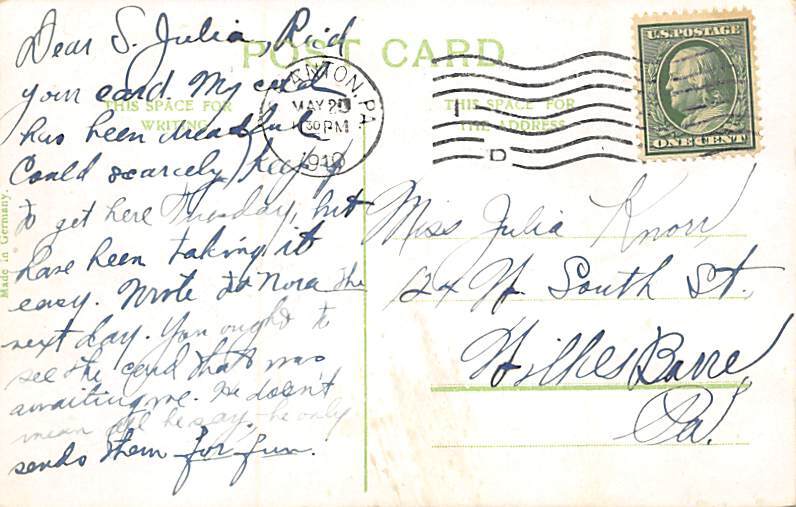 POST CARD
THIS SPACE FOR
WRITING
Dear S. Julia, Rec'd
your card. My cold
has been dreadful
Could scarcely keep
to get here Tuesday, but
have been taking it
easy. Wrote to Nora the
next day. You ought to
see the card that was
awaiting me. He doesn't
mean all he say, he only
sends them for fun.
Made in Germany.
ENTON, PA.
MAY 2
30 PM
1910
U.S. POSTAGE
ONE CENT
THIS SPACE FOR
THE ADDRESS
D
Miss Julia Knorr
24 W South St.
Wilkes Barre
Pa.